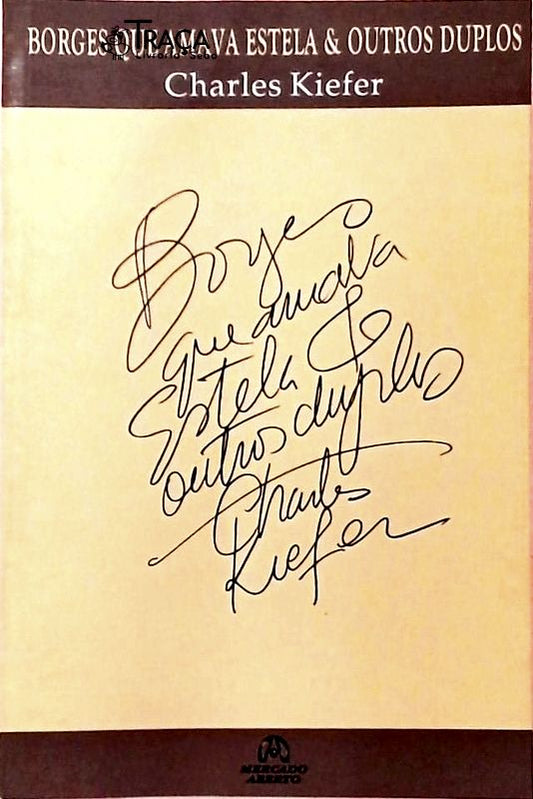 BORGES QUE AMAVA ESTELA & OUTROS DUPLOS
TRAÇA
Livraria Sebo
Charles Kiefer
Borges
que amava
Estela &
outros duplos
Charles
Kiefer
MERCADO
ABERTO